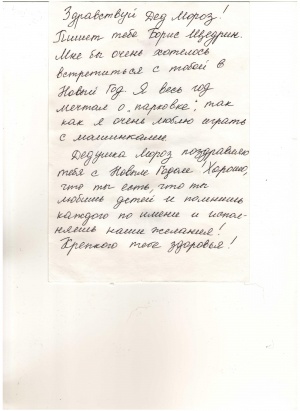 Здравствуй Дед Мороз!
Пишет тебе Борис Щедрин.
Мне бы очень хотелось
встретиться с тобой в
Новый Год. Я весь год
мечтал о „парковке“, так
как я очень люблю играть
с машинками.
Дедушка Мороз поздравляю
тебя с Новым Годом! Хорошо,
что ты есть, что ты
любишь детей и помнишь
каждого по имени и испол-
няешь наши желания!
Крепкого тебе здоровья!